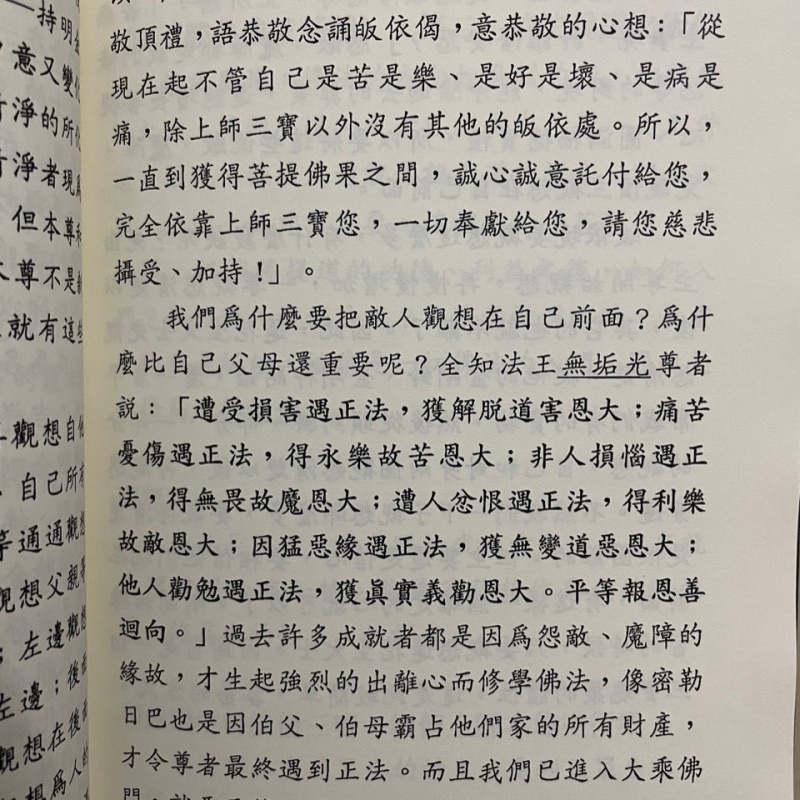 敬頂禮，語恭敬念誦皈依偈，意恭敬的心想：「從
現在起不管自己是苦是樂、是好是壞、是病是
痛，除上師三寶以外沒有其他的皈依處。所以，
一直到獲得菩提佛果之間，誠心誠意託付給您，
完全依靠上師三寶您，一切奉獻給您，請您慈悲
攝受、加持！」。
我們爲什麼要把敵人觀想在自己前面？爲什
麼比自己父母還重要呢？全知法王無垢光尊者
説：「遭受損害遇正法，獲解脱道害恩大；痛苦
憂傷遇正法，得永樂故苦恩大；非人損惱遇正
法，得無畏故魔恩大；遭人忿恨遇正法，得利樂
故敵恩大；因猛惡緣遇正法，獲無變道惡恩大；
他人勸勉遇正法，獲眞實義勸恩大。平等報恩善
迴向。」過去許多成就者都是因爲怨敵、魔障的
緣故，才生起強烈的出離心而修學佛法，像密勒
日巴也是因伯父、伯母霸占他們家的所有財產，
才令尊者最終遇到正法。而且我們已進入大乘佛
持明
意又變化
淨的所
淨者現
但本尊和
尊不是
就有這些
觀想自
自己所
等通通觀想
觀想父親
；左邊觀想
左邊；後
觀想在後
想爲人的